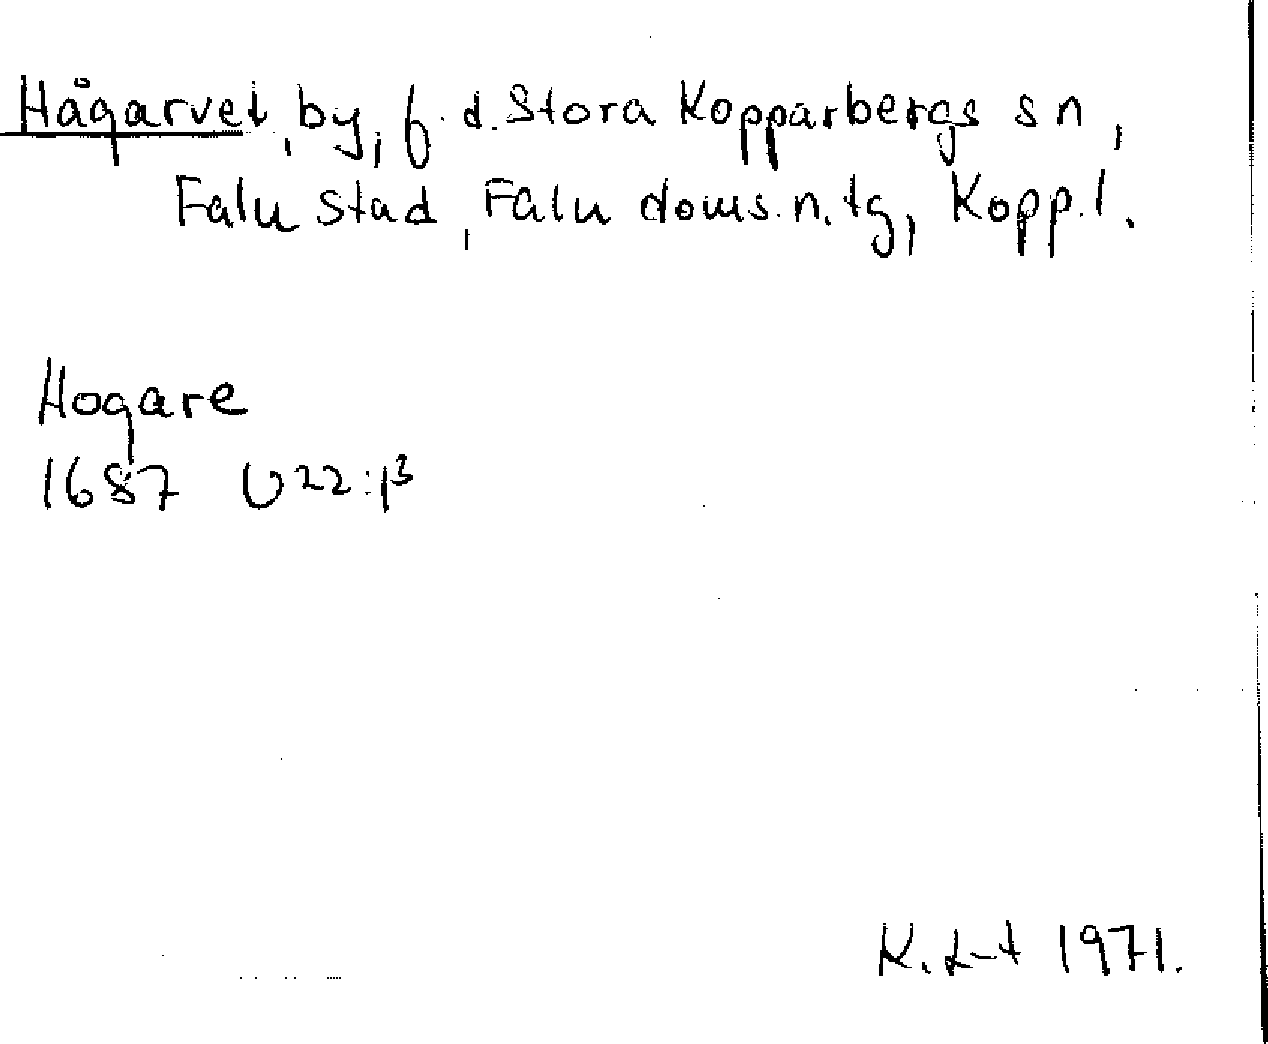 Hågarvet, by, f.d. Stora Kopparbergs sn,
Falu stad, Falu doms.n.tg, Kopp.l.
Hogare
1687 U22:1³
K. L-t 1971.